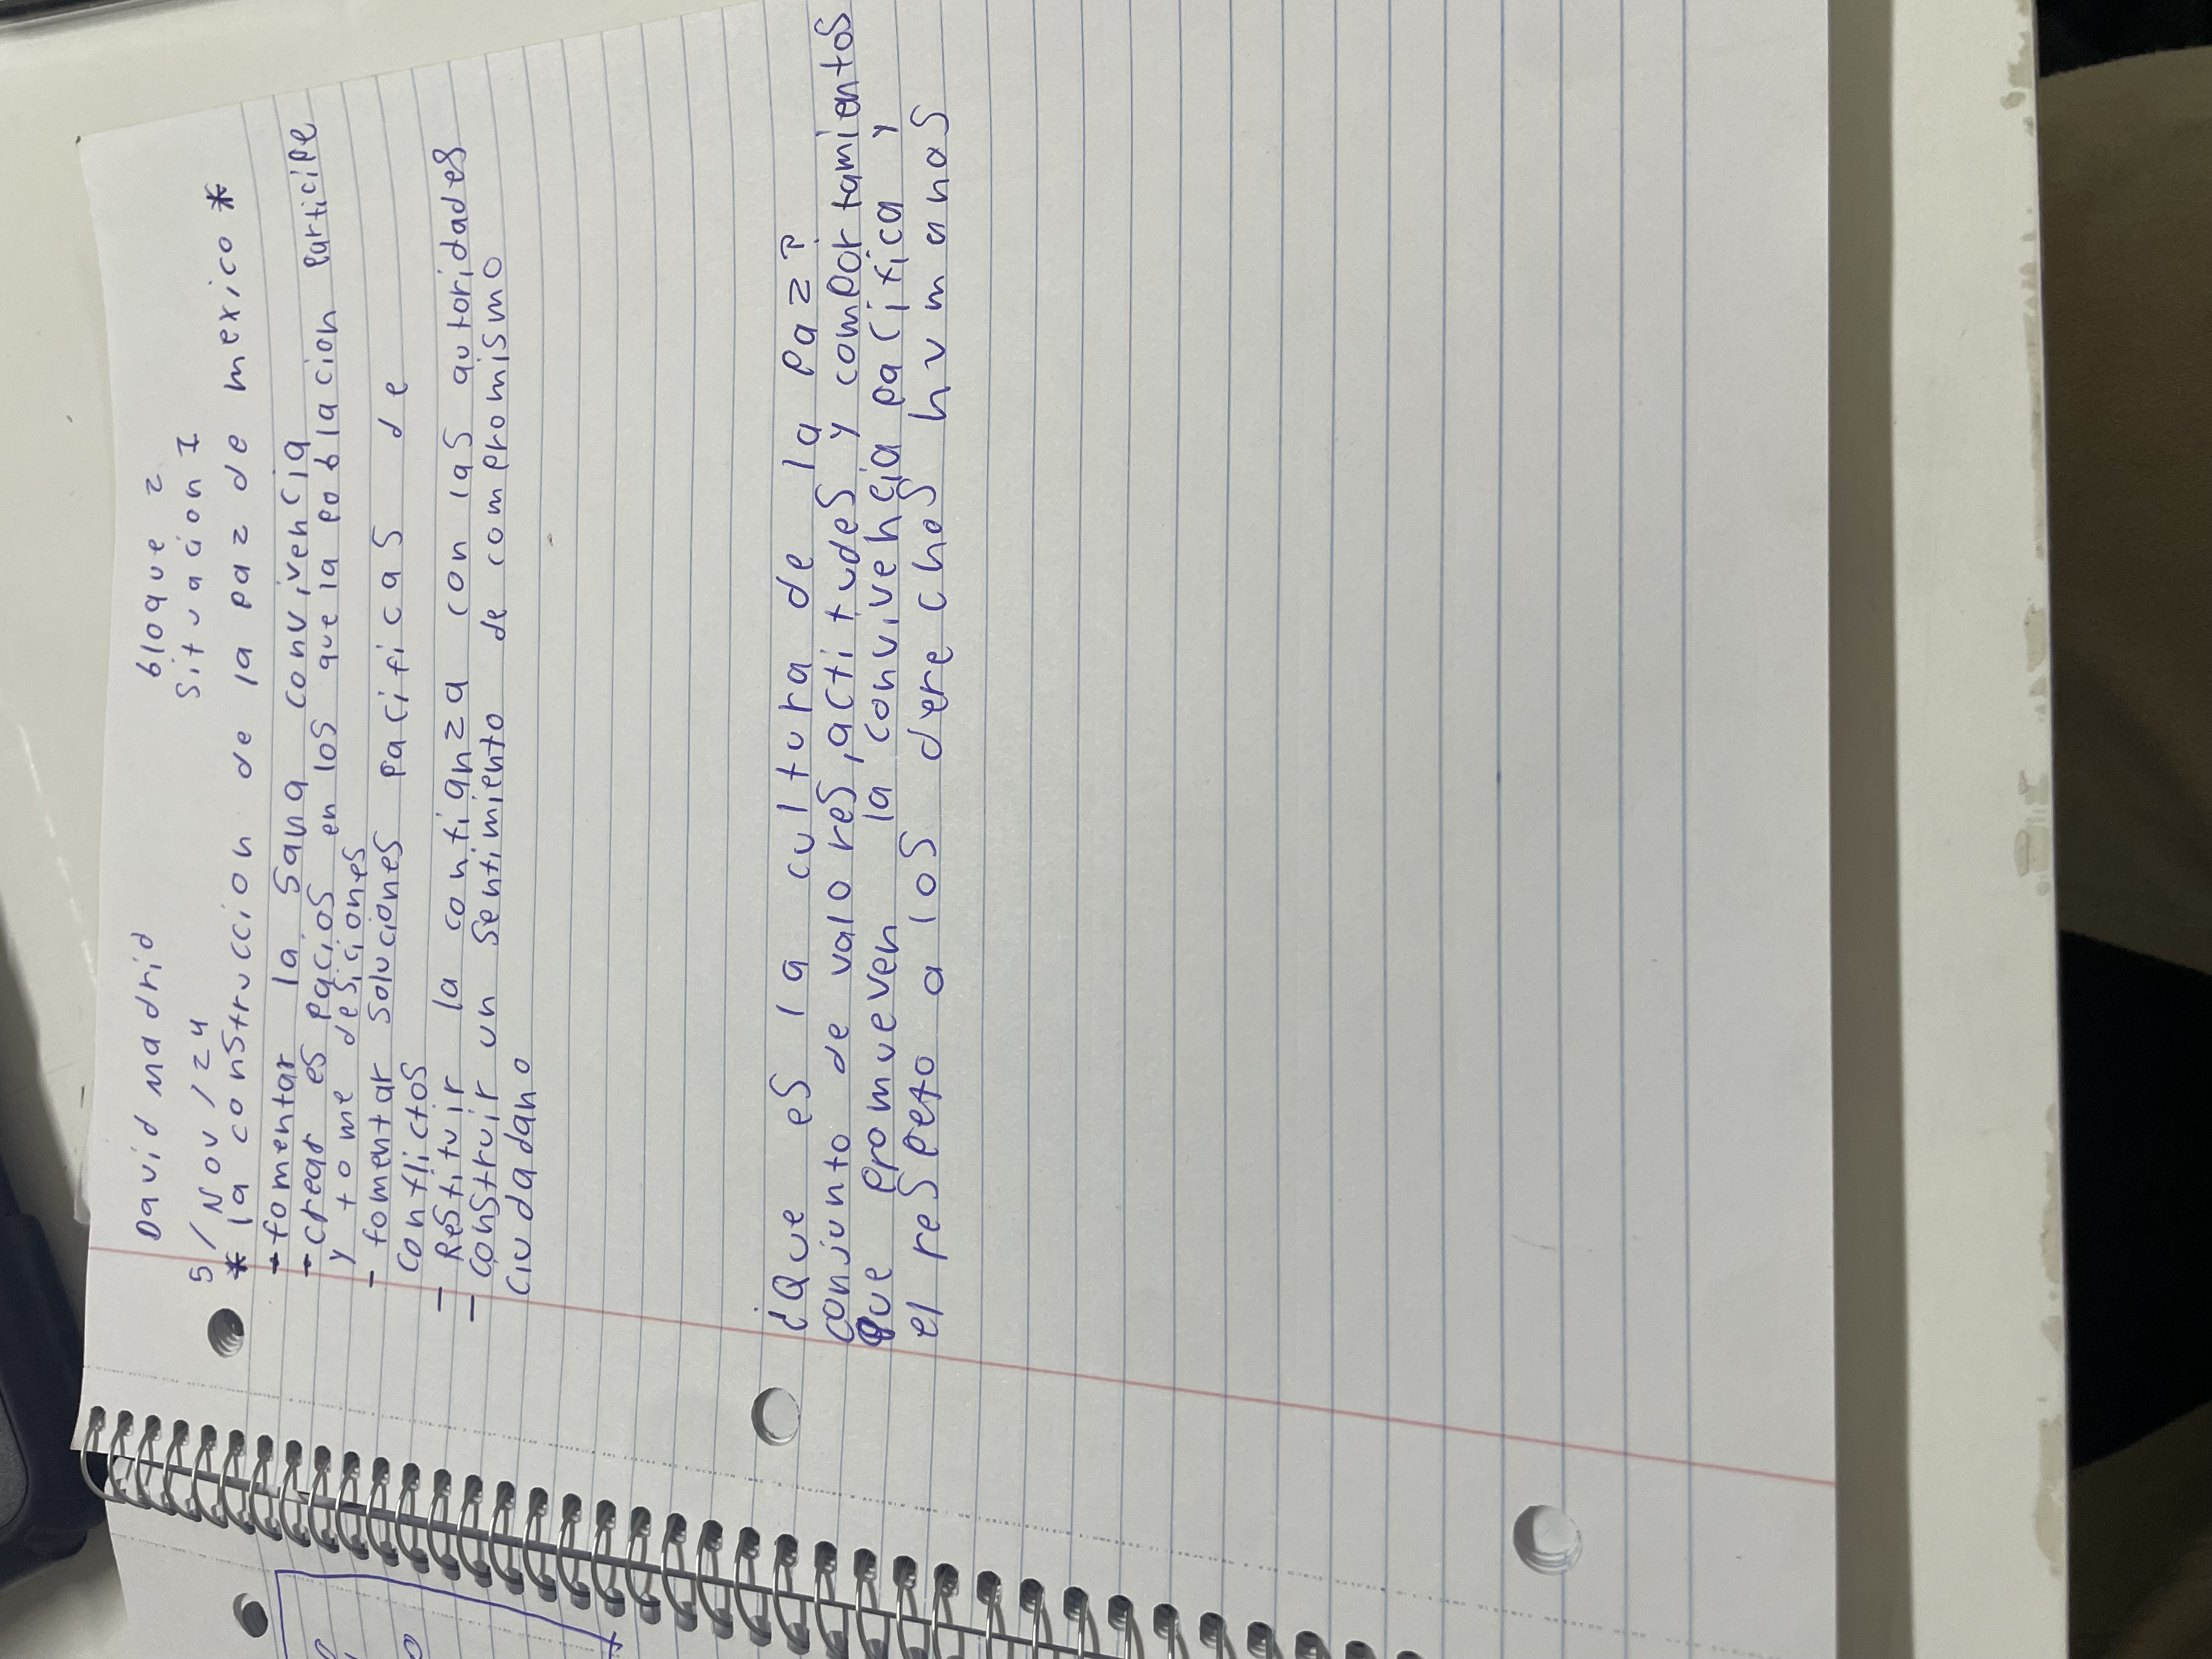 David madrid
bloque 2
5/Nov/24
Situacion 1
* la construccion de la paz de mexico *
- fomentar la sana convivencia
- crear espacios en los que la poblacion participe
y tome desiciones
- fomentar soluciones pacificas de
conflictos
- Restituir la confianza con las autoridades
- construir un sentimiento de compromismo
ciudadano
¿Que es la cultura de la paz?
conjunto de valores, actitudes y comportamientos
que promueven la convivencia pacifica y
el respeto a los derechos humanos